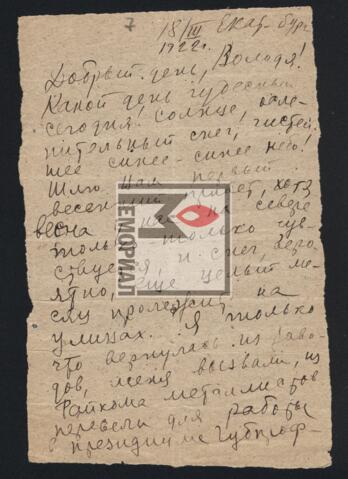 7
18/III Екат-бург
1922г.
Добрый день, Володя!
Какой день чудесный
сегодня! Солнце, осле-
пительный снег, чистей-
шее синее-синее небо!
Шлю Вам первый
весенний привет, хотя
весна на севере
только только чув-
ствуется, и снег, веро-
ятно, еще целый ме-
сяц пролежит на
улицах. Я только
что вернулась из заво-
дов, меня вызвали, из
Райкома металлистов
перевели для работы
в президиуме Губпроф-
МЕМОРИАЛ